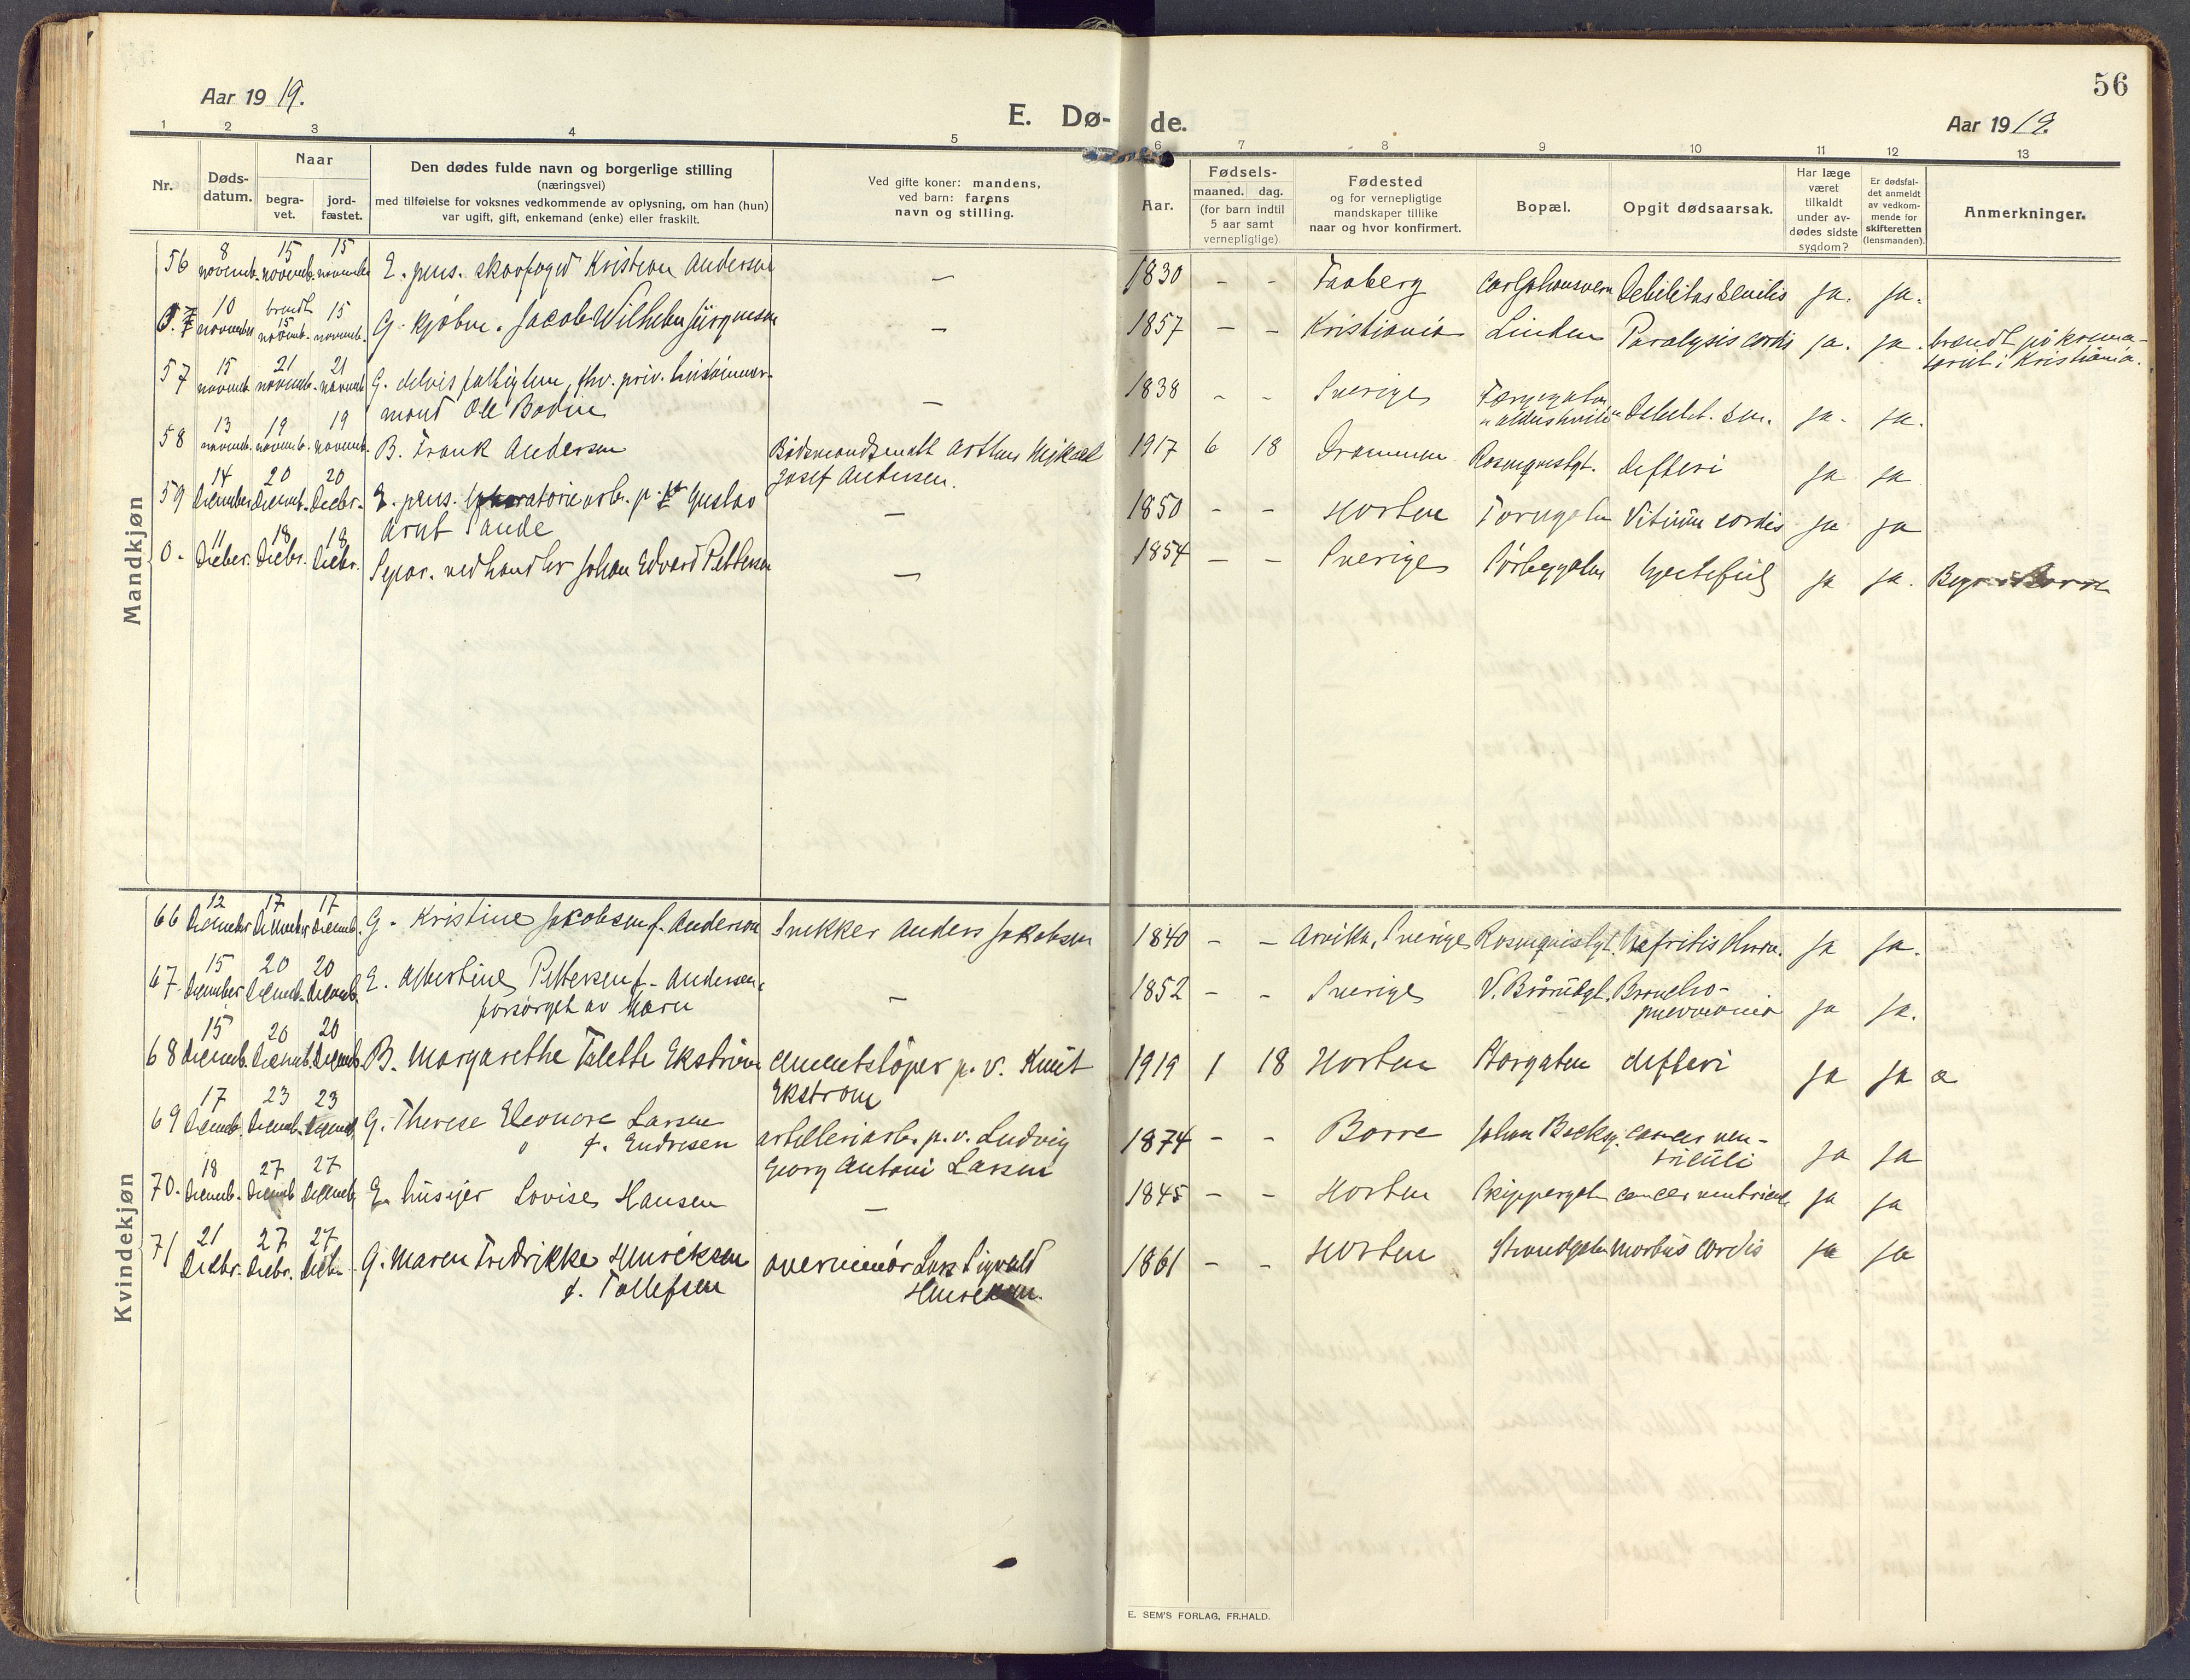 56
Aar 1919.
E. Dø-de.
Aar 1919.
1 2 3 4 5 6 7 8 9 10 11 12 13
Nr.
Døds-datum.
Naar
begra-vet.
jord-fæstet.
Den dødes fulde navn og borgerlige stilling
(næringsvei)
med tilføielse for voksnes vedkommende av oplysning, om han (hun)
var ugift, gift, enkemand (enke) eller fraskilt.
Ved gifte koner: mandens,
ved barn: farens
navn og stilling.
Aar.
Fødsels-
maaned. dag.
(for barn indtil
5 aar samt
vernepligtige)
Fødested
og for vernepligtige
mandskaper tillike
naar og hvor konfirmert.
Bopæl.
Opgit dødsaarsak.
Har læge
været
tilkaldt
under av-
dødes sidste
sygdom?
Er dødsfal-
det anmeldt
av vedkom-
mende for
skifteretten
(lensmanden).
Anmerkninger.
Mandkjøn
56 8 novemb. 15 novemb. 15 novemb. E. pens. skovfoged Kristian Andersen — 1830 - - Faaberg Carljohansvern Debilitas senilis ja. ja.
10 november brendt 15 novemb. 15 novemb. G. kjøbm. Jacob Wilhelm Jürgensen — 1857 - - Kristiania Linden Paralysis cordis ja. ja. brændt på krema-
toriet i Kristiania.
57 15 novemb. 21 novemb. 21 novemb. G. delvis fattiglem, fhv. priv. tusømmer-
mand Ole Bodin — 1838 - - Sverige Debilit. sen. ja. ja.
58 13 novemb. 19 novemb. 19 novemb. B. Frank Andersen Bådsmandsmatt Arthur Mikael
Josef Andersen. 1917 6 18 Drammen Rosenqvistgt. difteri ja ja
59 14 December 20 Decemb. 20 Decbr. E. pens. laboratoriearb. p. st Gustav
Arnt Sande — 1850 - - Horten Torvgaten Vitium cordis ja ja
0- 11 Decbr. 18 Decbr. 18 Decbr. Separ. vedhandler Johan Edvard Pettersen — 1854 - - Sverige Sørbygaten hjertefeil ja ja. Begr. i Borre
Kvindekjøn
66 12 December 17 December 17 Decemb. G. Kristine Jakobsen f. Anderson Snekker Anders Jakobsen 1840 - - Arvika, Sverige Rosenqvistgt. Nefritis chron. ja ja.
67. 15 December 20 Decemb. 20 Decemb. E. Albertine Pettersen f. Andersen,
forsørget av barn — 1852 - - Sverige V. Brårudgt. Broncho-
pneumonia ja ja.
68 15 Decemb. 20 Decemb. 20 Decemb. B. Margarethe Talette Ekström cementstøper p. v. Knut
Ekstrom 1919 1 18 Horten Storgaten difteri ja ja æ
69 17 Decemb. 23 Decemb. 23 Decemb. G. Therese Eleonora Larsen
f. Endresen artilleriarb. p. v. Ludvig
Georg Antoni Larsen 1874 - - Borre Johan Backsg. cancer ven-
triculi ja ja
70. 18 Decemb. 27 Decemb 27 Decemb. E. huseier Lovise Hansen — 1845 - - Horten Skippergaten cancer ventriculi ja ja
71 21 Decbr. 27 Decbr. 27 Decbr. G. Maren Fredrikke Henriksen
f. Tollefsen overminør Lars Sigvald
Henriksen. 1861 - - Horten Strandgaten Morbus cordis ja ja
E. SEM'S FORLAG, FR.HALD.